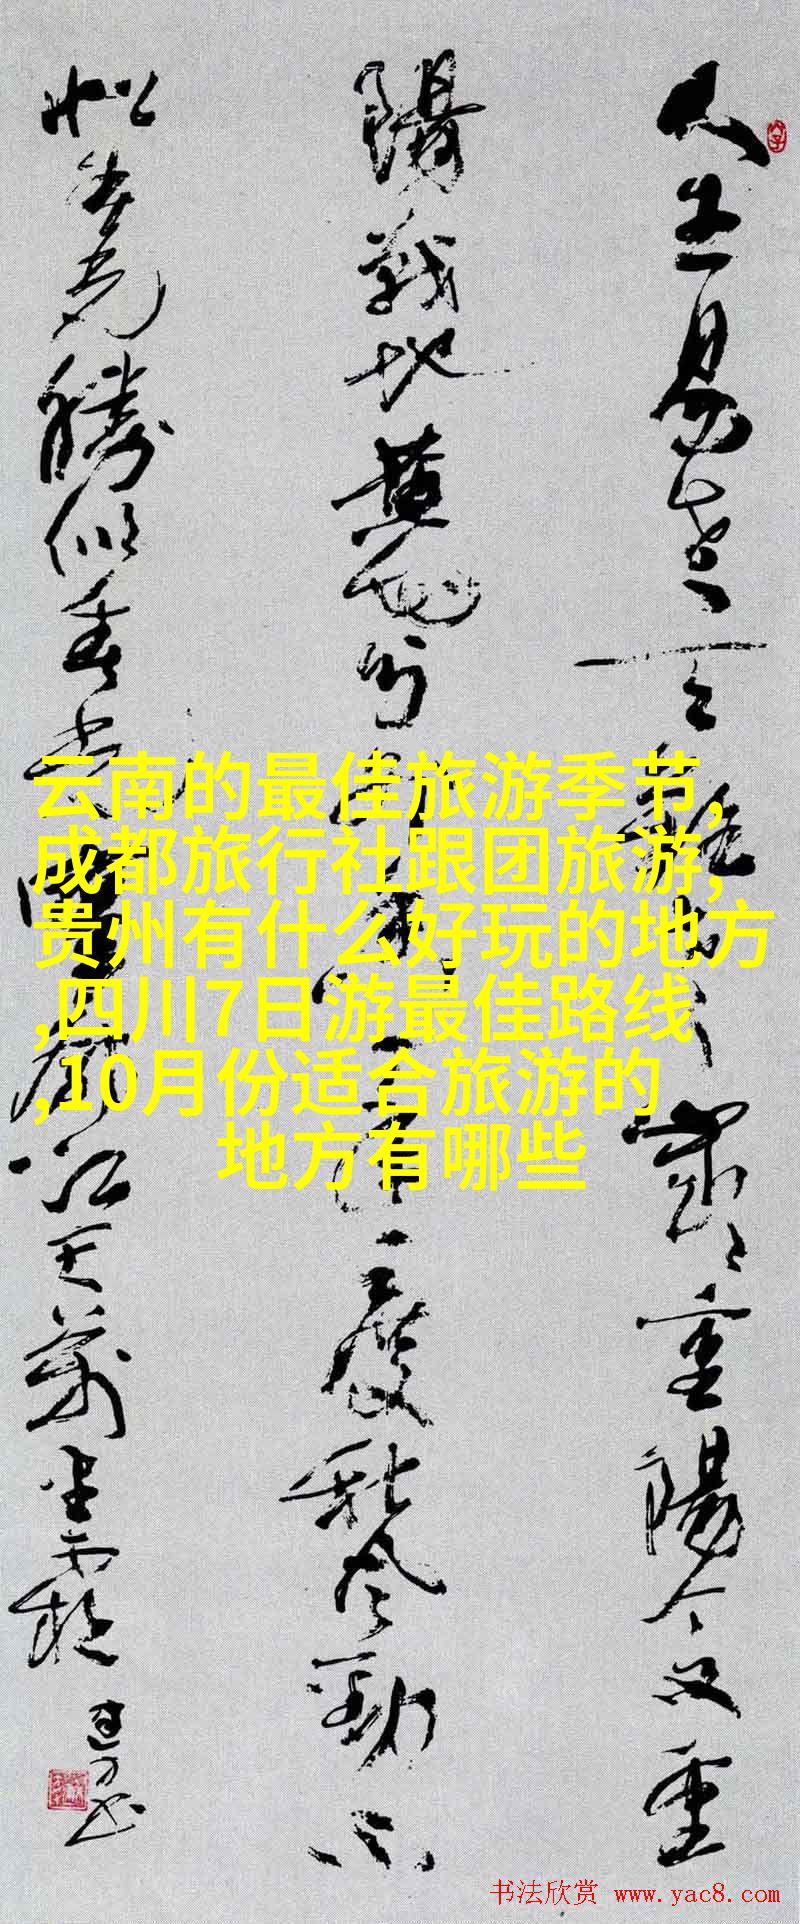 人生易老天難老歲〻重陽今又重
陽戰地黃花分外香一年一度秋風勁不
似春光勝似春光寥廓江天萬里霜
云南的最佳旅游季节,
成都旅行社跟团旅游,
贵州有什么好玩的地方
,四川7日游最佳路线
,10月份适合旅游的
地方有哪些
书法欣赏 www.yac8.com